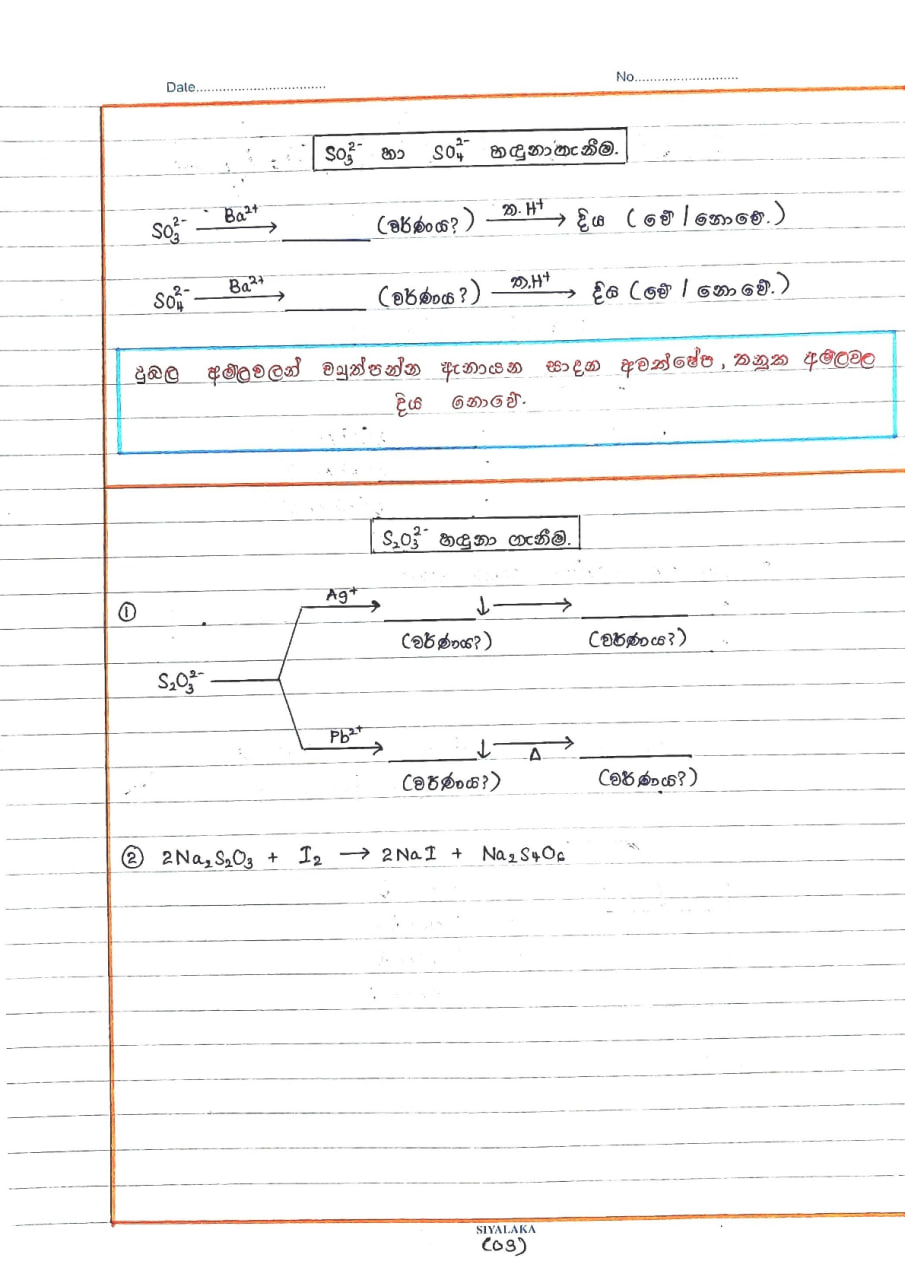 Date................................. No...........................
SO₃²⁻ හා SO₄²⁻ හඳුනාගැනීම.
SO₃²⁻ —Ba²⁺→ ________ (වර්ණය?) —ත.H⁺→ දිය ( වේ / නොවේ.)
SO₄²⁻ —Ba²⁺→ ________ (වර්ණය?) —ත.H⁺→ දිය ( වේ / නොවේ.)
දුබල අම්ලවලන් ව්‍යුත්පන්න ඇනායන සාදන අවක්ෂේප, තනුක අම්ලවල
දිය නොවේ.
S₂O₃²⁻ හඳුනා ගැනීම.
① Ag⁺→ ________↓ ⟶ ________
(වර්ණය?) (වර්ණය?)
S₂O₃²⁻
Pb²⁺→ ________↓ —Δ→ ________
(වර්ණය?) (වර්ණය?)
② 2Na₂S₂O₃ + I₂ → 2NaI + Na₂S₄O₆
SIYALAKA
(09)